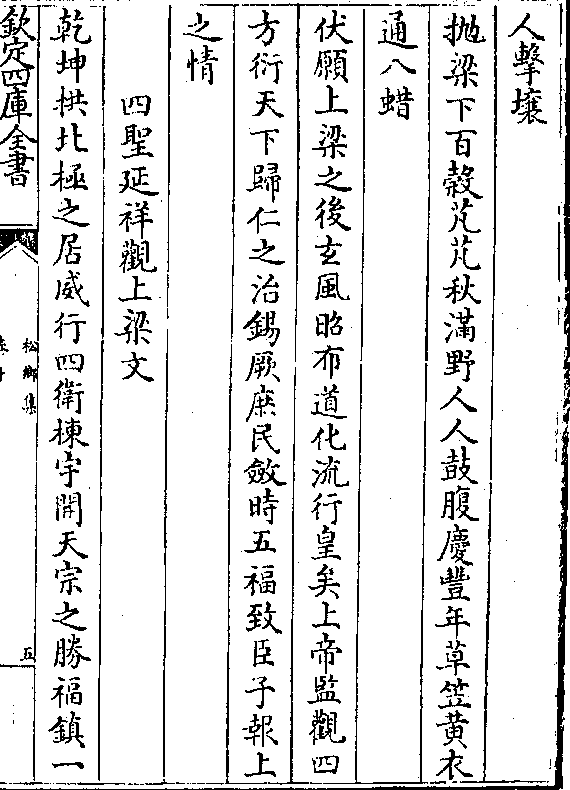 人擊壤
抛梁下百榖芃芃秋滿野人人鼓腹慶豐年草笠黄衣
通八蜡
伏願上梁之後玄風昭布道化流行皇矣上帝監觀四
方衍天下歸仁之治錫厥庶民斂時五福致臣子報上
之情
四聖延祥觀上梁文
乾坤拱北極之居威行四衛棟宇開天宗之勝福鎮一
欽定四庫全書
松鄉集
五